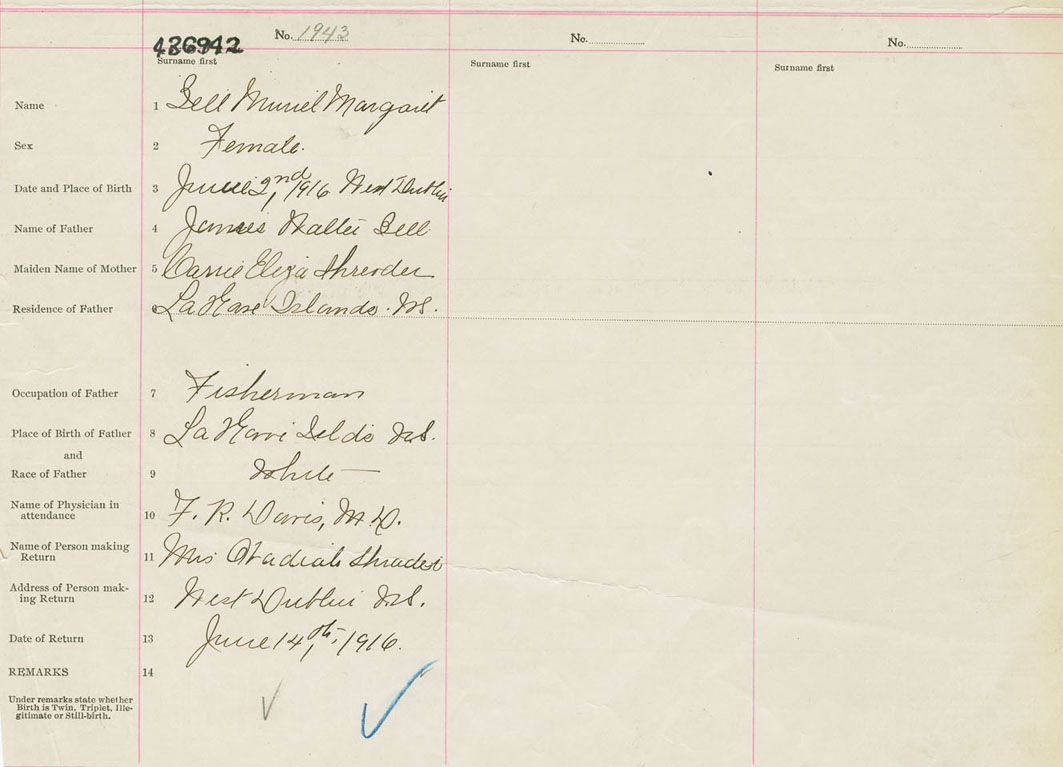 No. 1943
No.
No.
436942
Surname first
Surname first
Surname first
Name 1 Bell Muriel Margaret
Sex 2 Female.
Date and Place of Birth 3 June 2nd, 1916 West Dublin
Name of Father 4 James Walter Bell
Maiden Name of Mother 5 Carrie Eliza
Residence of Father 6 La Have Islands. N.S.
Occupation of Father 7 Fisherman
Place of Birth of Father 8 La Have Islds N.S.
and
Race of Father 9 White
Name of Physician in
attendance 10 F. R. Davis, M.D.
Name of Person making
Return 11 Mrs Obadiah
Address of Person mak-
ing Return 12 West Dublin N.S.
Date of Return 13 June 14th, 1916.
REMARKS 14
Under remarks state whether
Birth is Twin, Triplet, Ille-
gitimate or Still-birth.